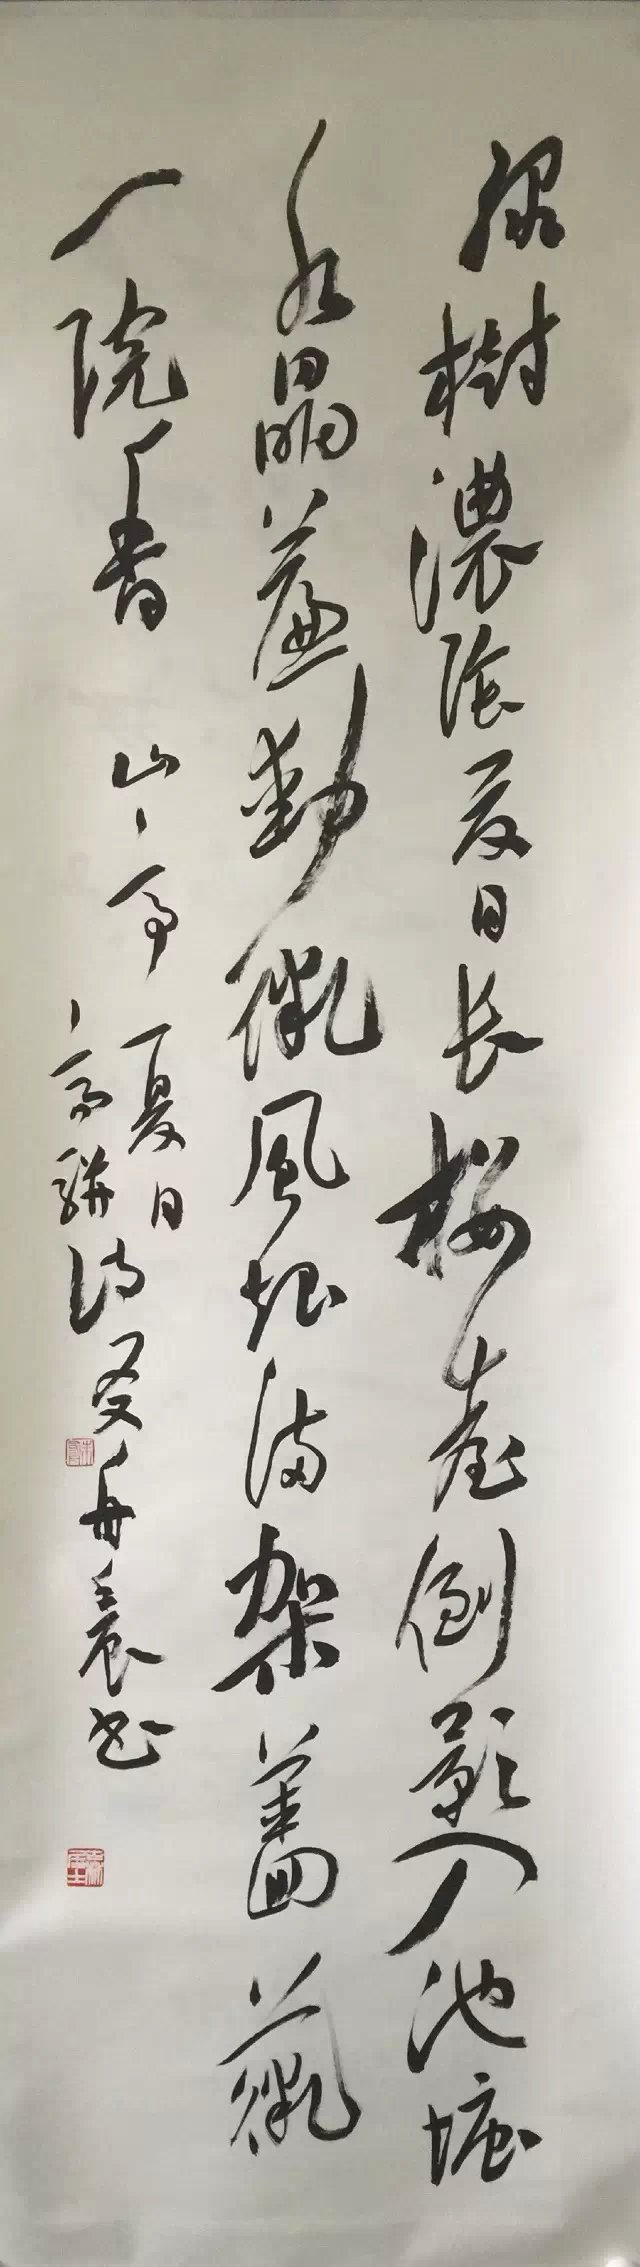 綠樹濃陰夏日长樓臺倒影入池塘
水晶簾動微風起滿架薔薇
一院香 山亭夏日
高駢詩 书